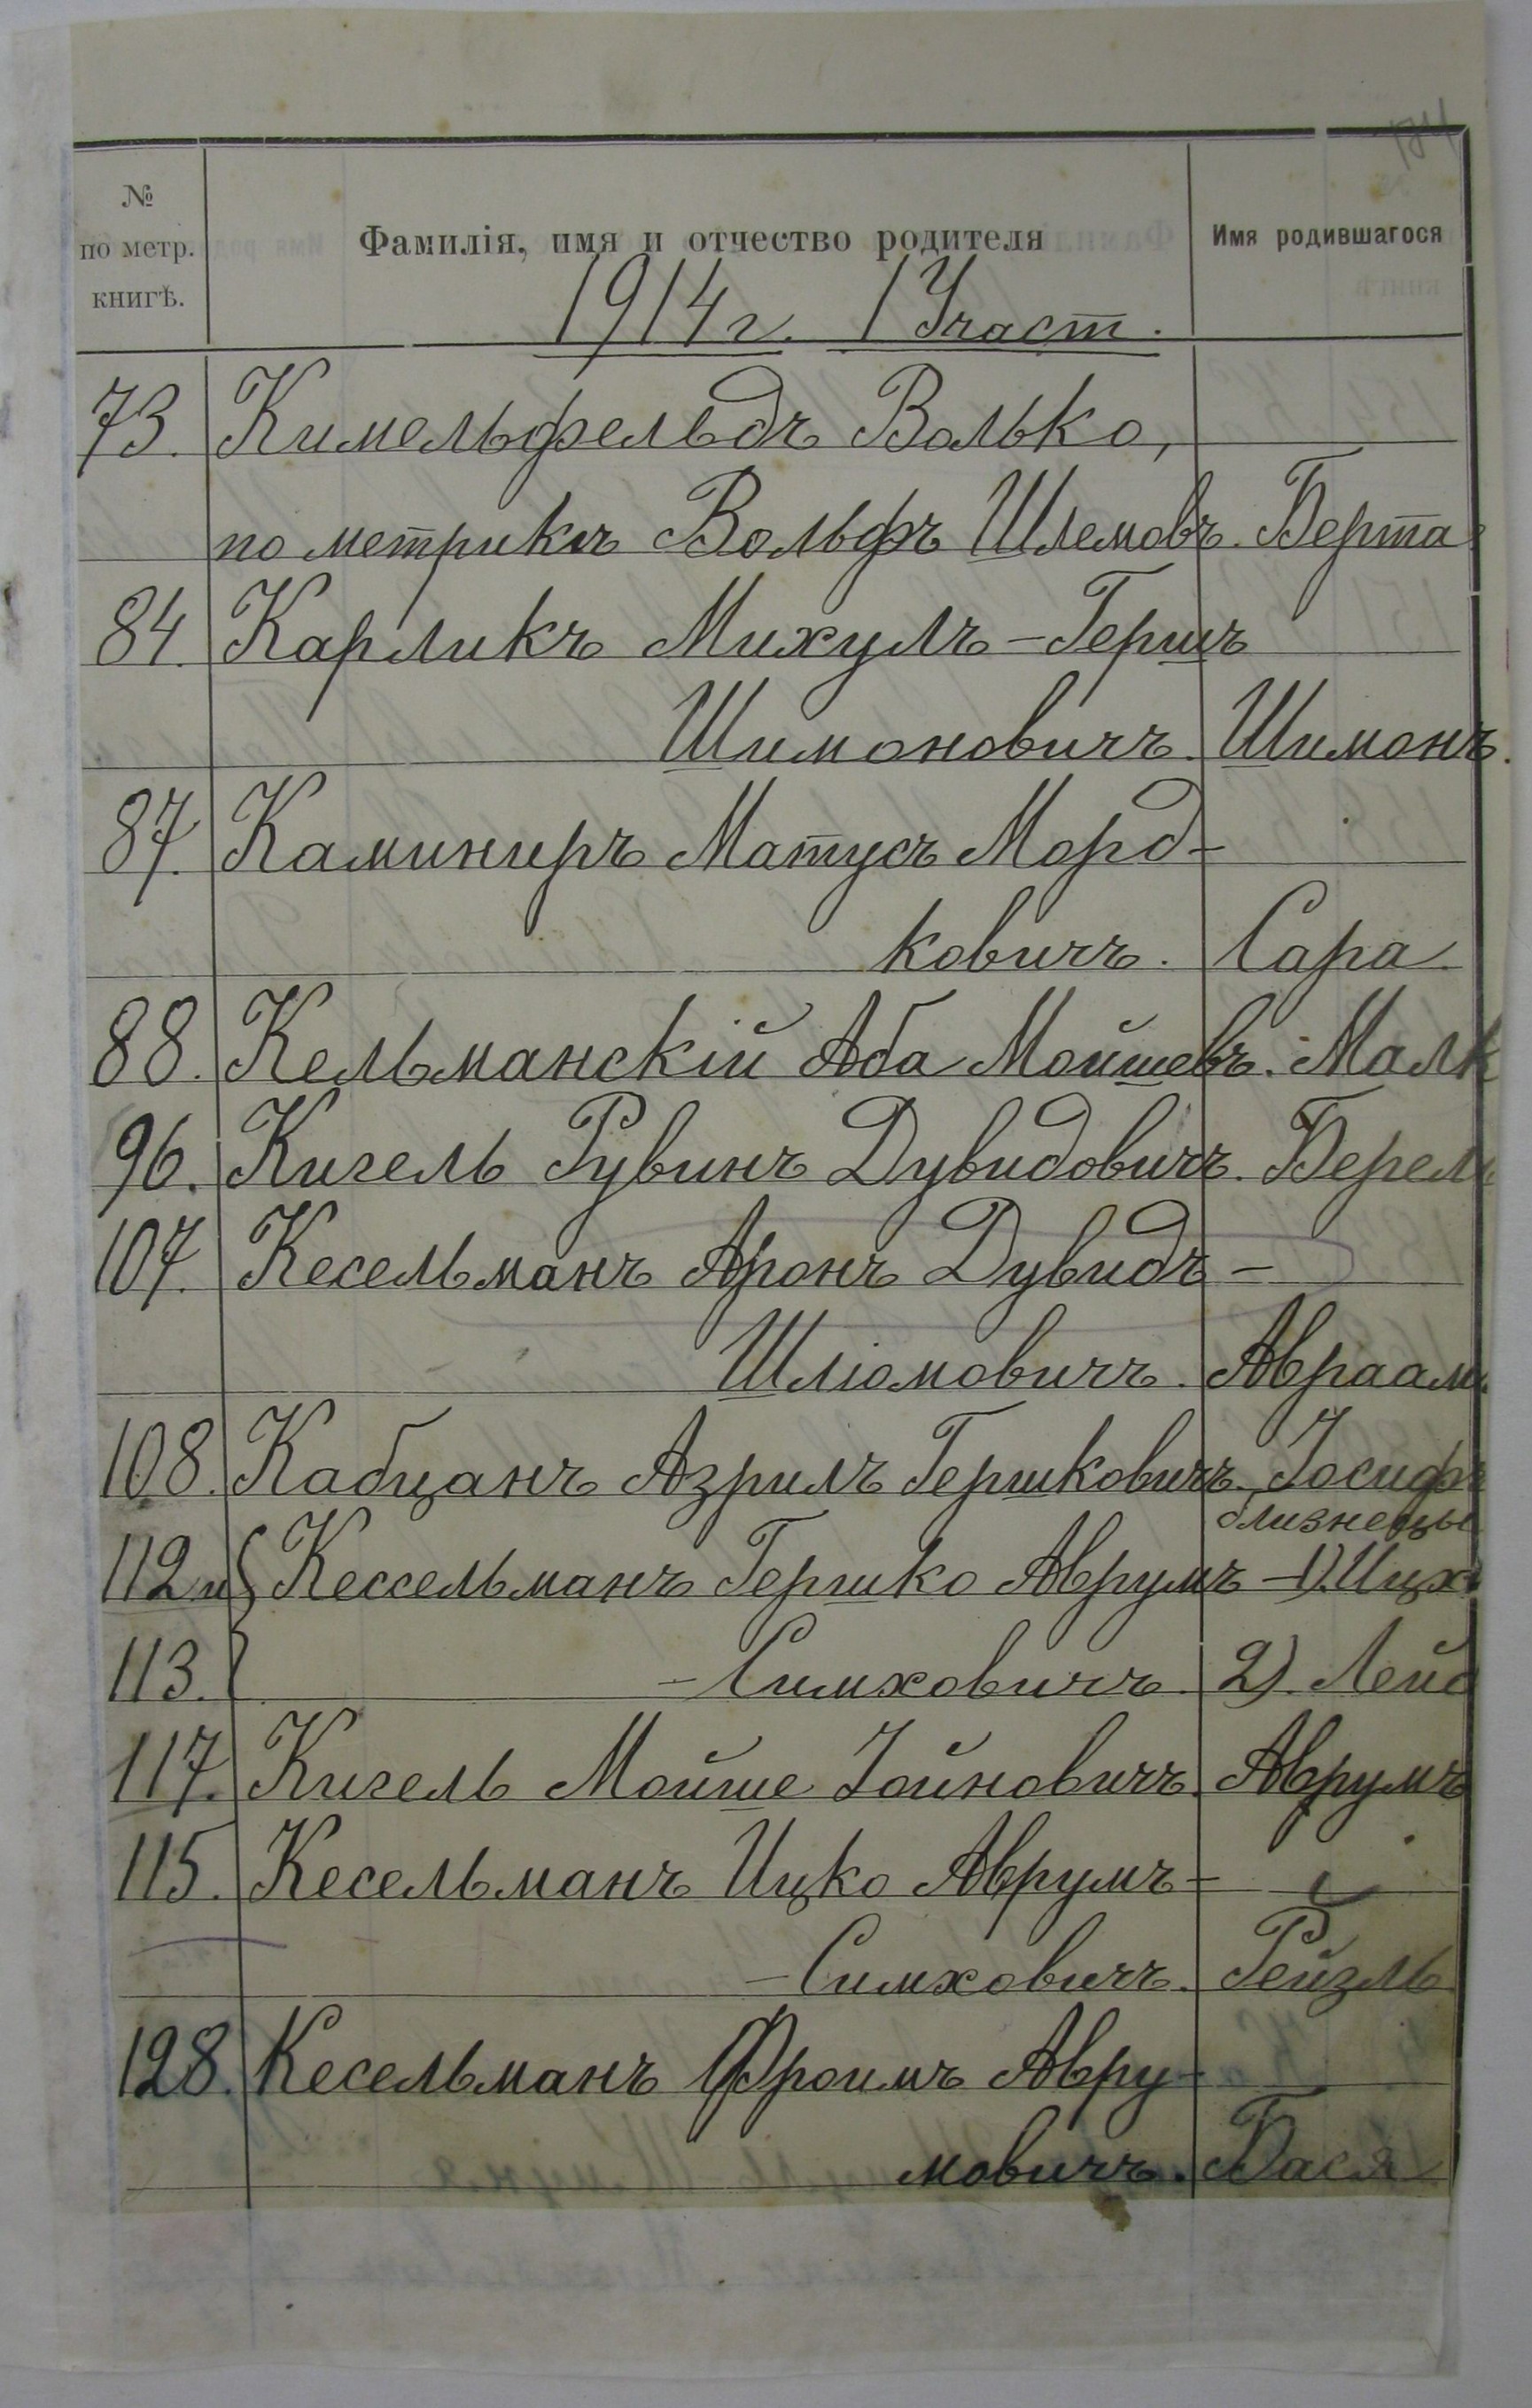 №
по метр.
книгѣ.
Фамилія, имя и отчество родителя
Имя родившагося
1914 г. 1 Участ.
73. Кимельфельдъ Волько,
по метрикѣ Вольфъ Шлемовъ. Берта
84. Карликъ Михулъ-Гершъ
Шимоновичъ. Шимонъ.
87. Каминиръ Матусъ Морд-
ковичъ. Сара
88. Кельманскій Аба Мойшевъ. Малк
96. Кигель Рувинъ Дувидовичъ. Берел
107. Кесельманъ Аронъ Дувидъ-
Шліомовичъ. Авраам
108. Кабцанъ Азрилъ Гершковичъ. Іосифъ
близнецы
112 и Кессельманъ Гершко Аврумъ- 1). Ицх
113. -Симховичъ. 2). Лейб
117. Кигель Мойше Іойновичъ. Аврумъ
115. Кесельманъ Ицко Аврумъ-
-Симховичъ. Рейзль
128. Кесельманъ Фроимъ Авру-
мовичъ. Бася